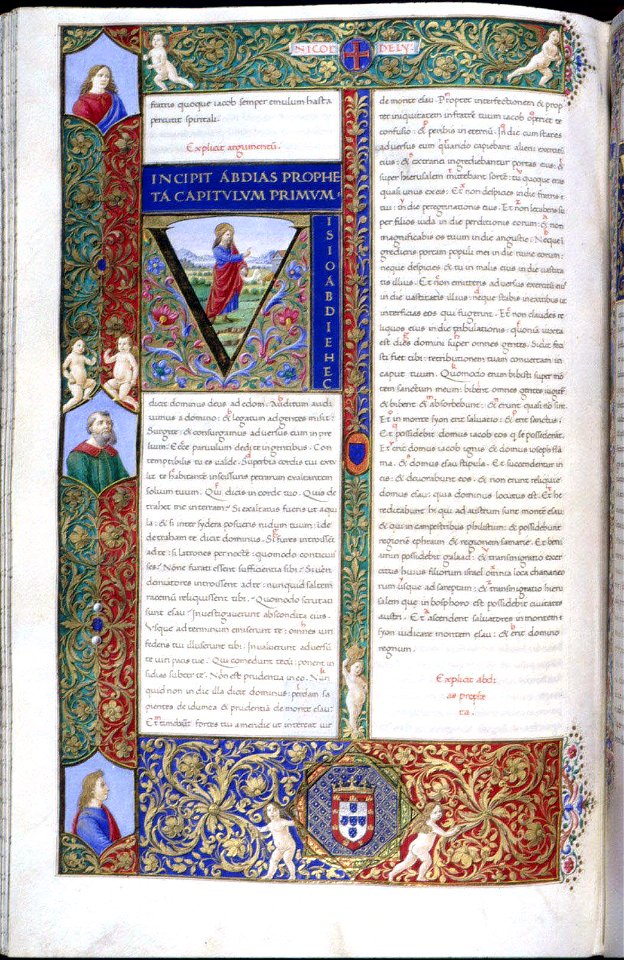 NICOL DE LY
fratris quoque iacob semper emulum hasta
percutit spiritali.
Explicit argumentū.
INCIPIT ABDIAS PROPHE
TA CAPITVLVM PRIMVM
VISIO ABDIE HEC
dicit dominus deus ad edom. Auditum audi
uimus a domino: & legatum ad gentes misit:
Surgite: & consurgamus aduersus eum in pre
lium. Ecce paruulum dedi te in gentibus. Con
temptibilis tu es ualde. Superbia cordis tui extu
lit te habitantē in scissuris petrarum exaltantem
solium tuum. Qui dicis in corde tuo. Quis de
trahet me in terram? Si exaltatus fueris ut aqui
la: & si inter sydera posueris nidum tuum: īde
detraham te dicit dominus. Si fures introissēt
ad te: si latrones per noctē: quomodo conticuis
ses? Nōne furati essent sufficientia sibi? Si uin
demiatores introissent ad te: nunquid saltem
racemū reliquissent tibi? Quomodo scrutati
sunt esau? Inuestigauerunt abscondita eius.
Vsque ad terminum emiserunt te: omnes uiri
federis tui illuserunt tibi: Inualuerunt aduersū
te uiri pacis tue. Qui comedunt tecū: ponent in
sidias subter te. Nōn est prudentia in eo. Nun
quid non in die illa dicit dominus: perdam sa
pientes de idumea & prudentiā de monte esau?
Et timebūt fortes tui a meridie ut intereat uir
de monte esau. Propter interfectionem & prop
ter iniquitatem in fratrē tuum iacob operiet te
confusio: & peribis in eternū. In die cum stares
aduersus eum quando capiebant alieni exercitū
eius: & extranei ingrediebantur portas eius: &
super hierusalem mittebant sortē: tu quoque eras
quasi unus ex eis. Et nōn despicies in die fratris
tui: in die peregrinationis eius. Et nōn letaberis su
per filios iuda in die perditionis eorum: & non
magnificabis os tuum in die angustie. Neque ī
gredieris portam populi mei in die ruine eorum:
neque despicies & tu in malis eius in die uastita
tis illius. Et nōn emitteris aduersus exercitū eius
in die uastitatis illius: neque stabis in exitibus ut
interficias eos qui fugerint. Et nōn claudes re
liquos eius in die tribulationis: quoniā iuxta
est dies domini super omnes gentes. Sicut feci
sti fiet tibi: retributionem tuam conuertam in
caput tuum. Quomodo enim bibisti super mō
tem sanctum meum: bibent omnes gentes iugiter
& bibent & absorbebunt: & erunt quasi nō sint
Et in monte syon erit saluatio: & erit sanctus.
Et possidebit domus iacob eos qui se possederāt.
Et erit domus iacob ignis: & domus ioseph flā
ma. & domus esau stipula. Et succendentur in
eis: & deuorabunt eos: & non erunt reliquie
domus esau: quia dominus locutus est. Et he
reditabunt hi qui ad austrum sunt monte esau:
& qui in campestribus philistiim: & possidebunt
regionē ephraim & regionem samarie. Et benia
min possidebit galaad: & transmigratio exer
citus huius filiorum israel omnia loca chananeo
rum usque ad sareptam: & transmigratio hieru
salem que in bosphoro est possidebit ciuitates
austri. Et ascendent saluatores in montem s
yon iudicare montem esau: & erit domino
regnum.
Explicit abdi
as prophe
ta.